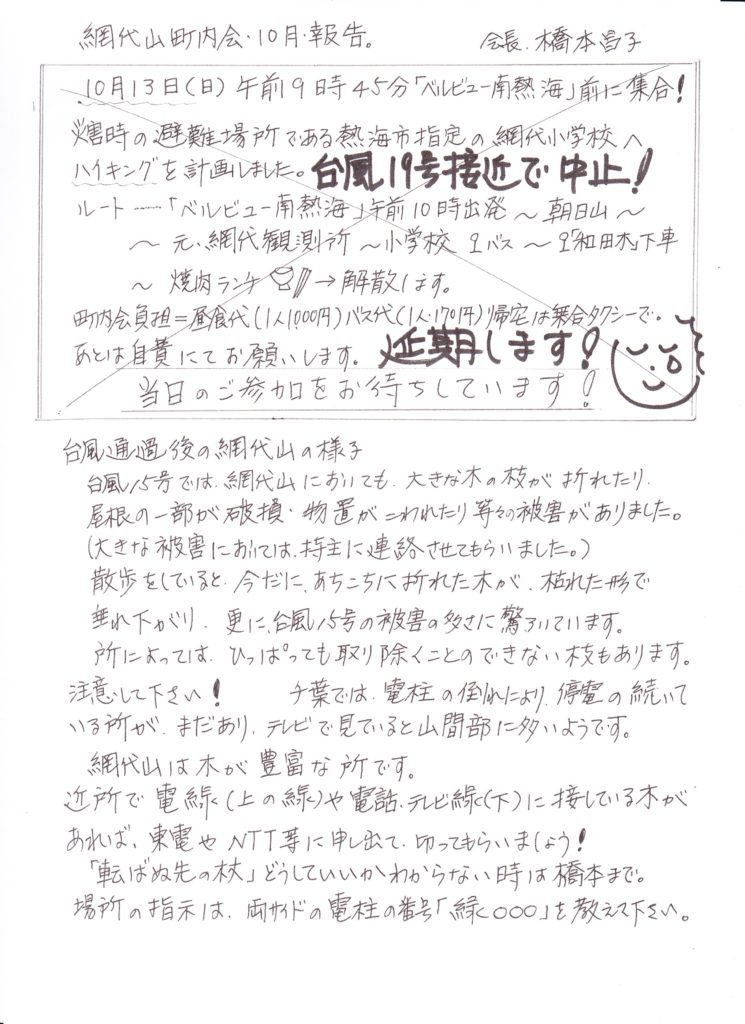 網代山町内会・10月・報告。 会長.橋本昌子
10月13日(日)午前9時45分「ベルビュー南熱海」前に集合!
災害時の避難場所である熱海市指定の網代小学校へ
ハイキングを計画しました。台風19号接近で中止!
ルート……「ベルビュー南熱海」午前10時出発〜朝日山〜
〜元.網代観測所〜小学校 バス〜「和田木」下車
〜焼肉ランチ→解散します。
町内会負担=昼食代(1人1000円)バス代(1人・170円)帰宅は乗合タクシーで。
あとは自費にてお願いします。延期します!
当日のご参加をお待ちしています!
台風通過後の網代山の様子
台風15号では、網代山においても、大きな木の枝が折れたり、
屋根の一部が破損・物置がこわれたり等々の被害がありました。
(大きな被害においては、持主に連絡させてもらいました。)
散歩をしていると、今だに、あちこちに折れた木が、枯れた形で
垂れ下がり、更に、台風15号の被害の多さに驚ろいています。
所によっては、ひっぱっても取り除くことのできない枝もあります。
注意して下さい! 千葉では、電柱の倒れにより、停電の続いて
いる所が、まだあり、テレビで見ていると山間部に多いようです。
網代山は木が豊富な所です。
近所で電線(上の線)や電話、テレビ線(下)に接している木が
あれば、東電やNTT等に申し出て、切ってもらいましょう!
「転ばぬ先の杖」どうしていいかわからない時は橋本まで。
場所の指示は、両サイドの電柱の番号「線○○○」を教えて下さい。